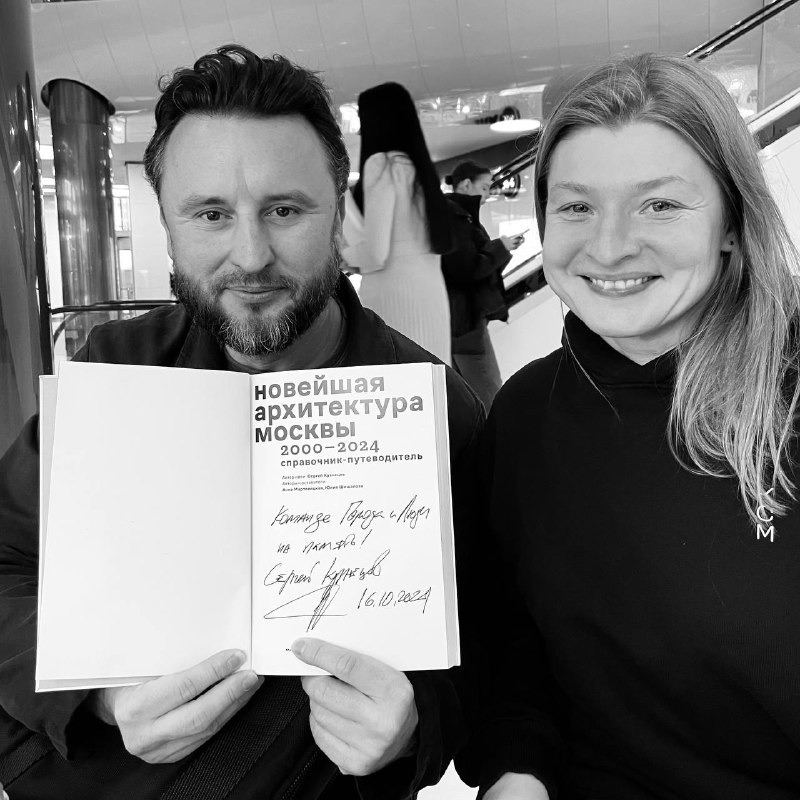 новейшая
архитектура
москвы
2000–2024
справочник-путеводитель
Автор идеи: Сергей Кузнецов
Авторы-составители:
Анна Мартовицкая, Юлия Шишалова
Команде Города и Люди
на память!
Сергей Кузнецов
16.10.2024